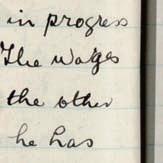 in progress
The wages
the other
he has